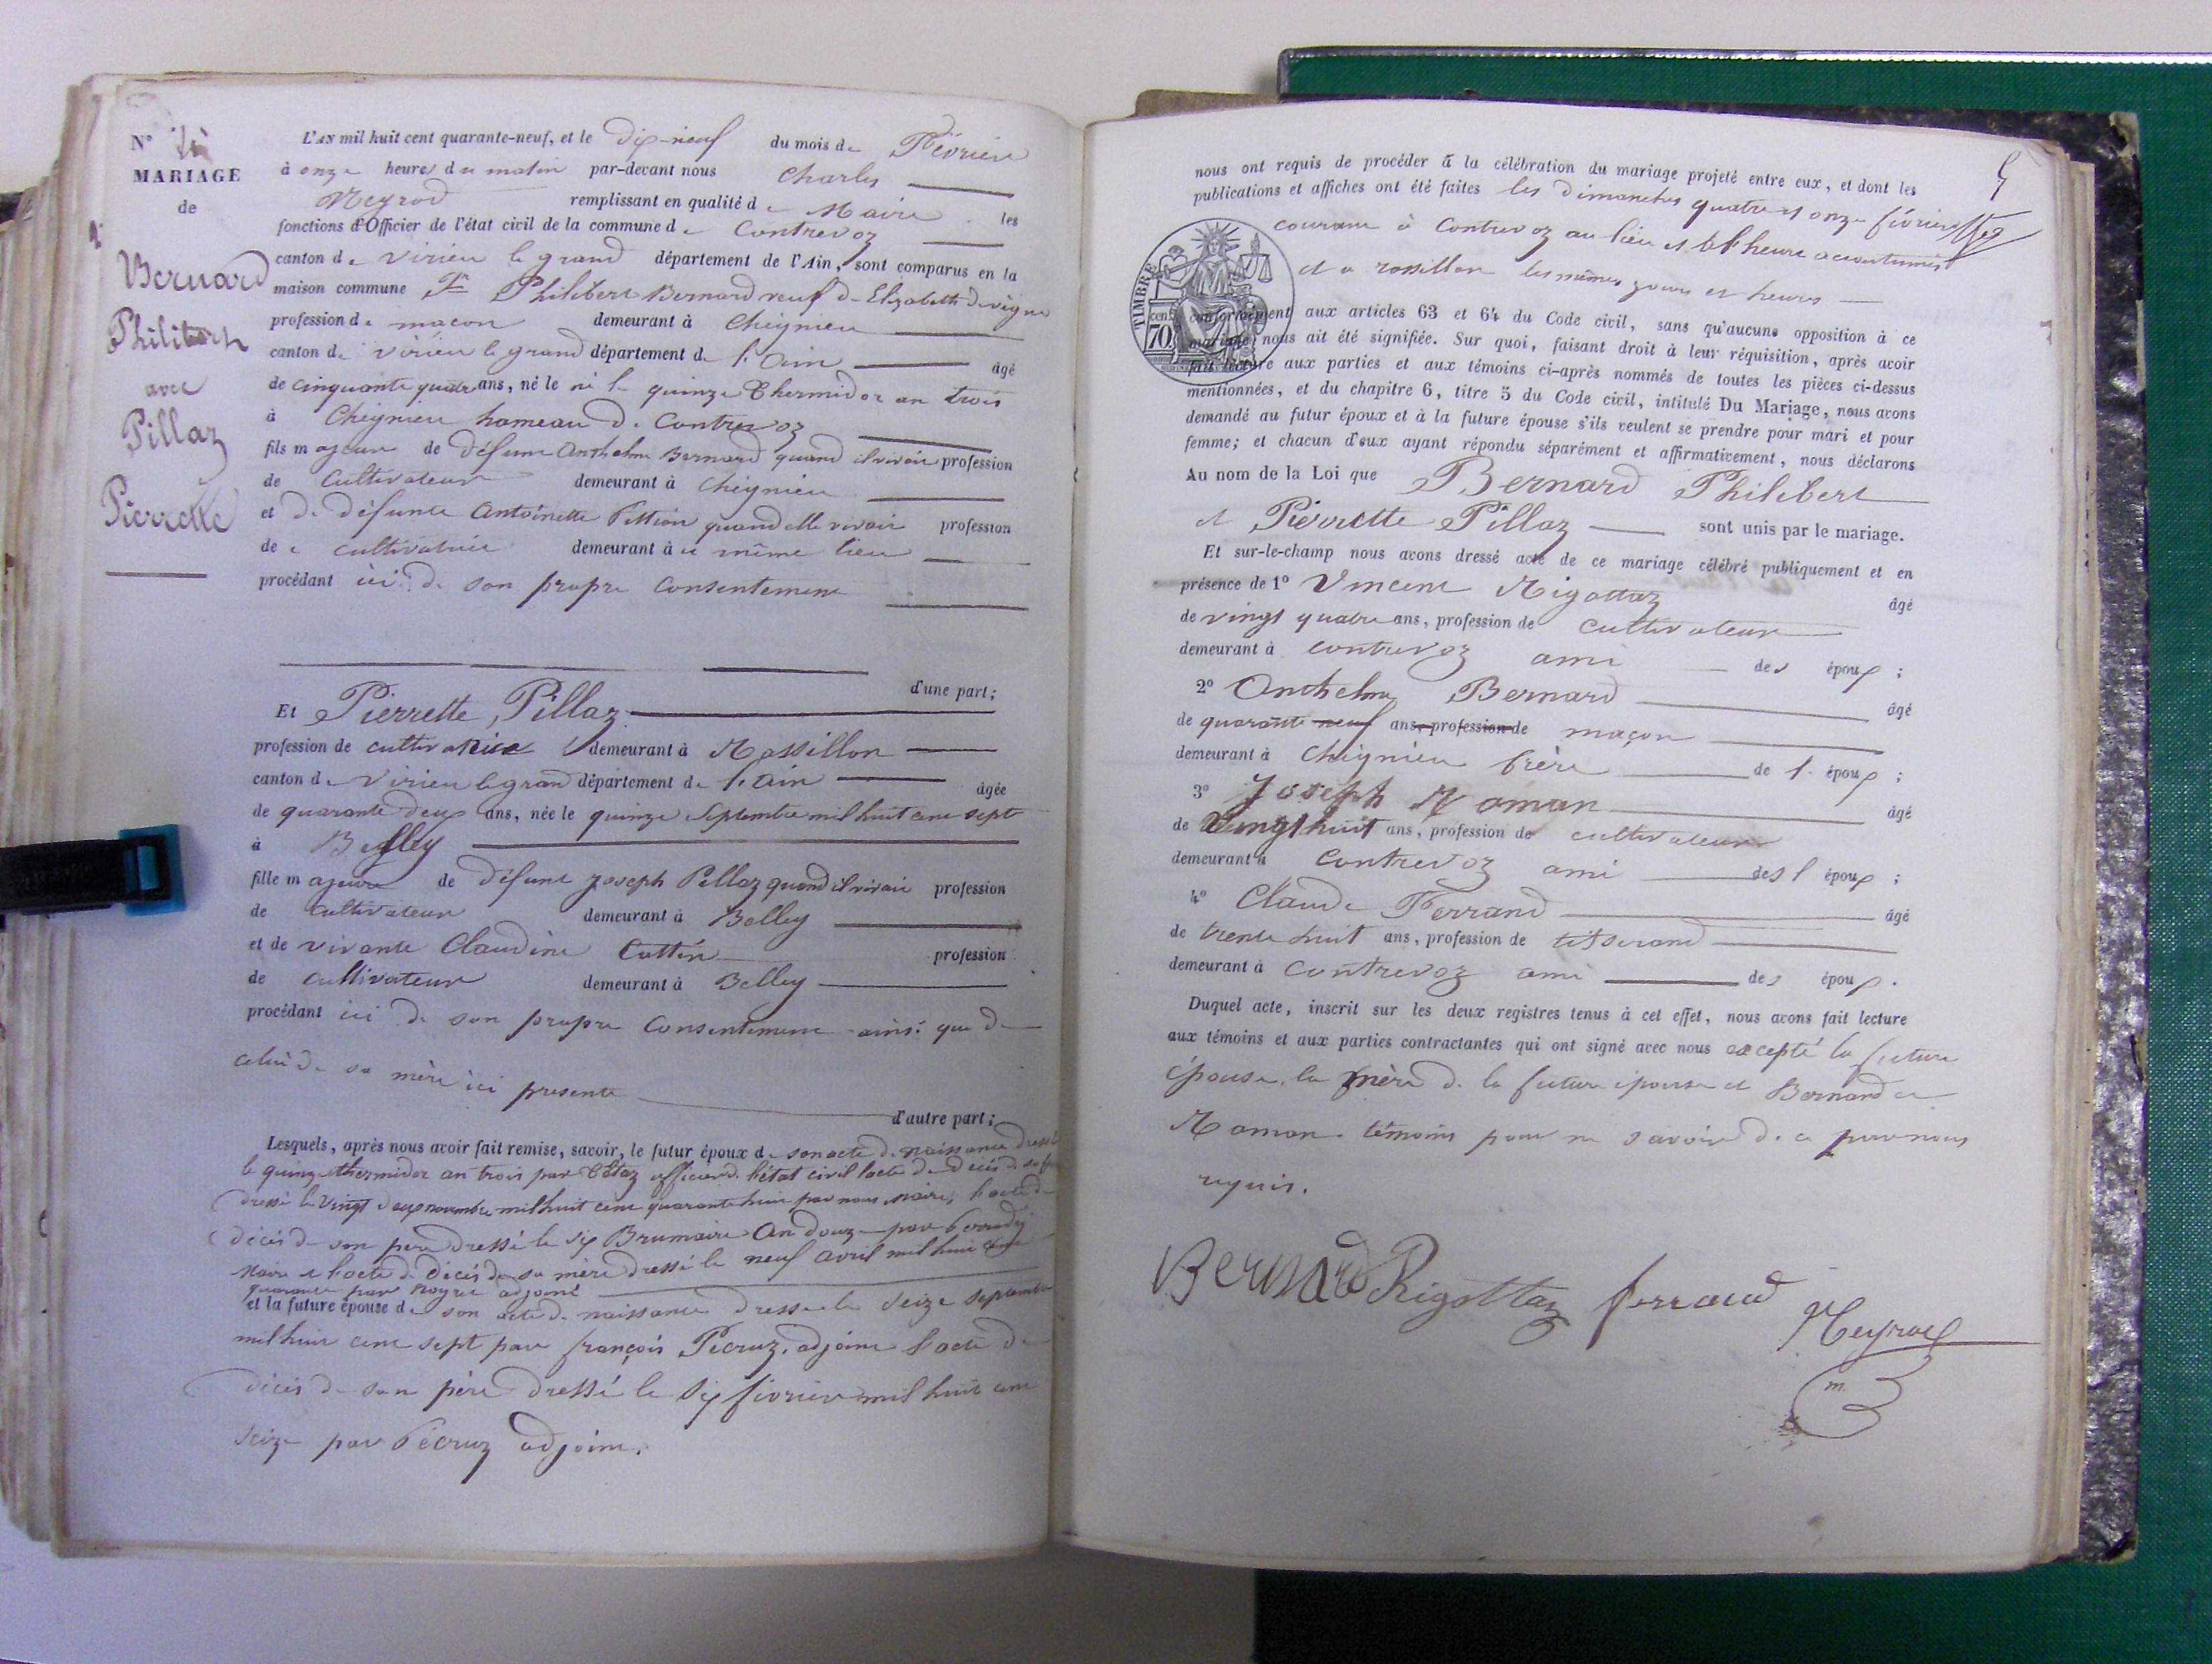 N°
MARIAGE
de
Bernard
Philibert
avec
Pillaz
Pierrette
L'AN mil huit cent quarante-neuf, et le dix-neuf du mois de Février
à onze heures du matin par-devant nous Charles
Meyrod remplissant en qualité de Maire les
fonctions d'Officier de l'état civil de la commune de Contrevoz
canton de virieu le grand département de l'Ain, sont comparus en la
maison commune Philibert Bernard veuf d'Elizabeth
profession de maçon demeurant à Cheignieu
canton de virieu le grand département de l'ain âgé
de cinquante quatre ans, né le né le quinze Thermidor an trois
à Cheignieu hameau de Contrevoz
fils majeur de défunt Anthelme Bernard quand il vivait profession
de cultivateur demeurant à Cheignieu
et de défunte Antoinette Pittion quand elle vivait profession
de cultivatrice demeurant à même lieu
procédant ici de son propre consentement
d'une part;
Et Pierrette Pillaz
profession de cultivatrice demeurant à Rossillon
canton de Virieu le grand département de l'ain âgée
de quarante deux ans, née le quinze Septembre mil huit cent sept
à Belley
fille majeure de défunt Joseph Pillaz quand il vivait profession
de cultivateur demeurant à Belley
et de vivante Claudine Cuttin profession
de cultivateur demeurant à Belley
procédant ici de son propre consentement ainsi que de
celui de sa mère ici presente
d'autre part;
Lesquels, après nous avoir fait remise, savoir, le futur époux de son acte de naissance dressé
le quinze thermidor an trois par officier de l'état civil l'acte de décès de sa
dressé le vingt deux novembre mil huit cent quarante huit par nous maire, l'acte de
décès de son père dressé le six Brumaire An douze par
Maire et l'acte de décès de sa mère dressé le neuf avril mil huit cent
quarante par adjoint
et la future épouse de son acte de naissance dressé le seize septembre
mil huit cent sept par françois Pécruz, adjoint l'acte de
décès de son père dressé le six février mil huit cent
seize par Pécruz adjoint.
5
nous ont requis de procéder à la célébration du mariage projeté entre eux, et dont les
publications et affiches ont été faites les dimanches quatre et onze février
courant à Contrevoz au lieu et à l'heure accoutumés
et a rossillon les mêmes jours et heures
TIMBRE
70 cent
conformément aux articles 63 et 64 du Code civil, sans qu'aucune opposition à ce
mariage nous ait été signifiée. Sur quoi, faisant droit à leur réquisition, après avoir
fait lecture aux parties et aux témoins ci-après nommés de toutes les pièces ci-dessus
mentionnées, et du chapitre 6, titre 5 du Code civil, intitulé Du Mariage, nous avons
demandé au futur époux et à la future épouse s'ils veulent se prendre pour mari et pour
femme; et chacun d'eux ayant répondu séparément et affirmativement, nous déclarons
Au nom de la Loi que Bernard Philibert
et Pierrette Pillaz sont unis par le mariage.
Et sur-le-champ nous avons dressé acte de ce mariage célébré publiquement et en
présence de 1° Vincent Rigottaz âgé
de vingt quatre ans, profession de cultivateur
demeurant à contrevoz ami des époux ;
2° Anthelme Bernard âgé
de quarante neuf ans, profession de maçon
demeurant à cheignieu frère de l'époux ;
3° Joseph Roman âgé
de vingt huit ans, profession de cultivateur
demeurant à contrevoz ami des époux ;
4° Claude Ferrand âgé
de trente huit ans, profession de tisserand
demeurant à contrevoz ami des époux.
Duquel acte, inscrit sur les deux registres tenus à cet effet, nous avons fait lecture
aux témoins et aux parties contractantes qui ont signé avec nous excepté la future
épouse, la mère de la future épouse et Bernard et
Roman témoins pour ne savoir de ce par nous
requis.
Bernard Rigottaz ferrand
Meyrod
m.